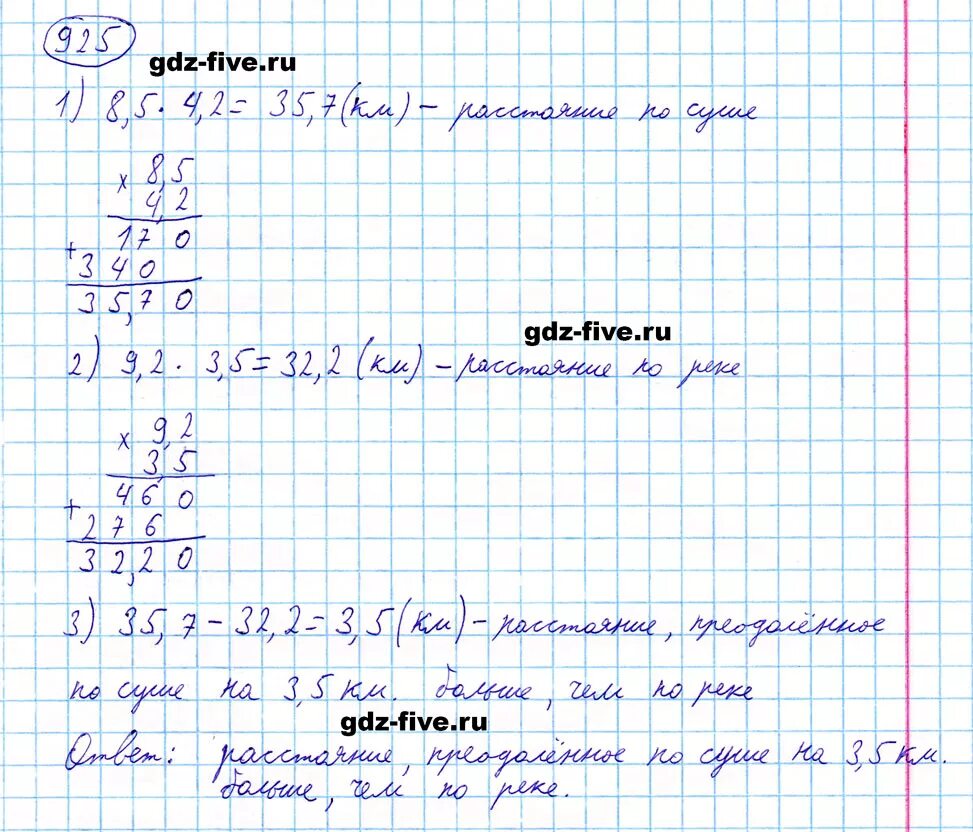 925
gdz-five.ru
1) 8,5 · 4,2 = 35,7 (км) – расстояние по суше
× 8,5
4,2
+ 170
340
35,70
gdz-five.ru
2) 9,2 · 3,5 = 32,2 (км) – расстояние по реке
× 9,2
3,5
+ 460
276
32,20
3) 35,7 – 32,2 = 3,5 (км) – расстояние, преодалённое
по суше на 3,5 км. больше, чем по реке
gdz-five.ru
Ответ: расстояние, преодалённое по суше на 3,5 км.
больше, чем по реке.